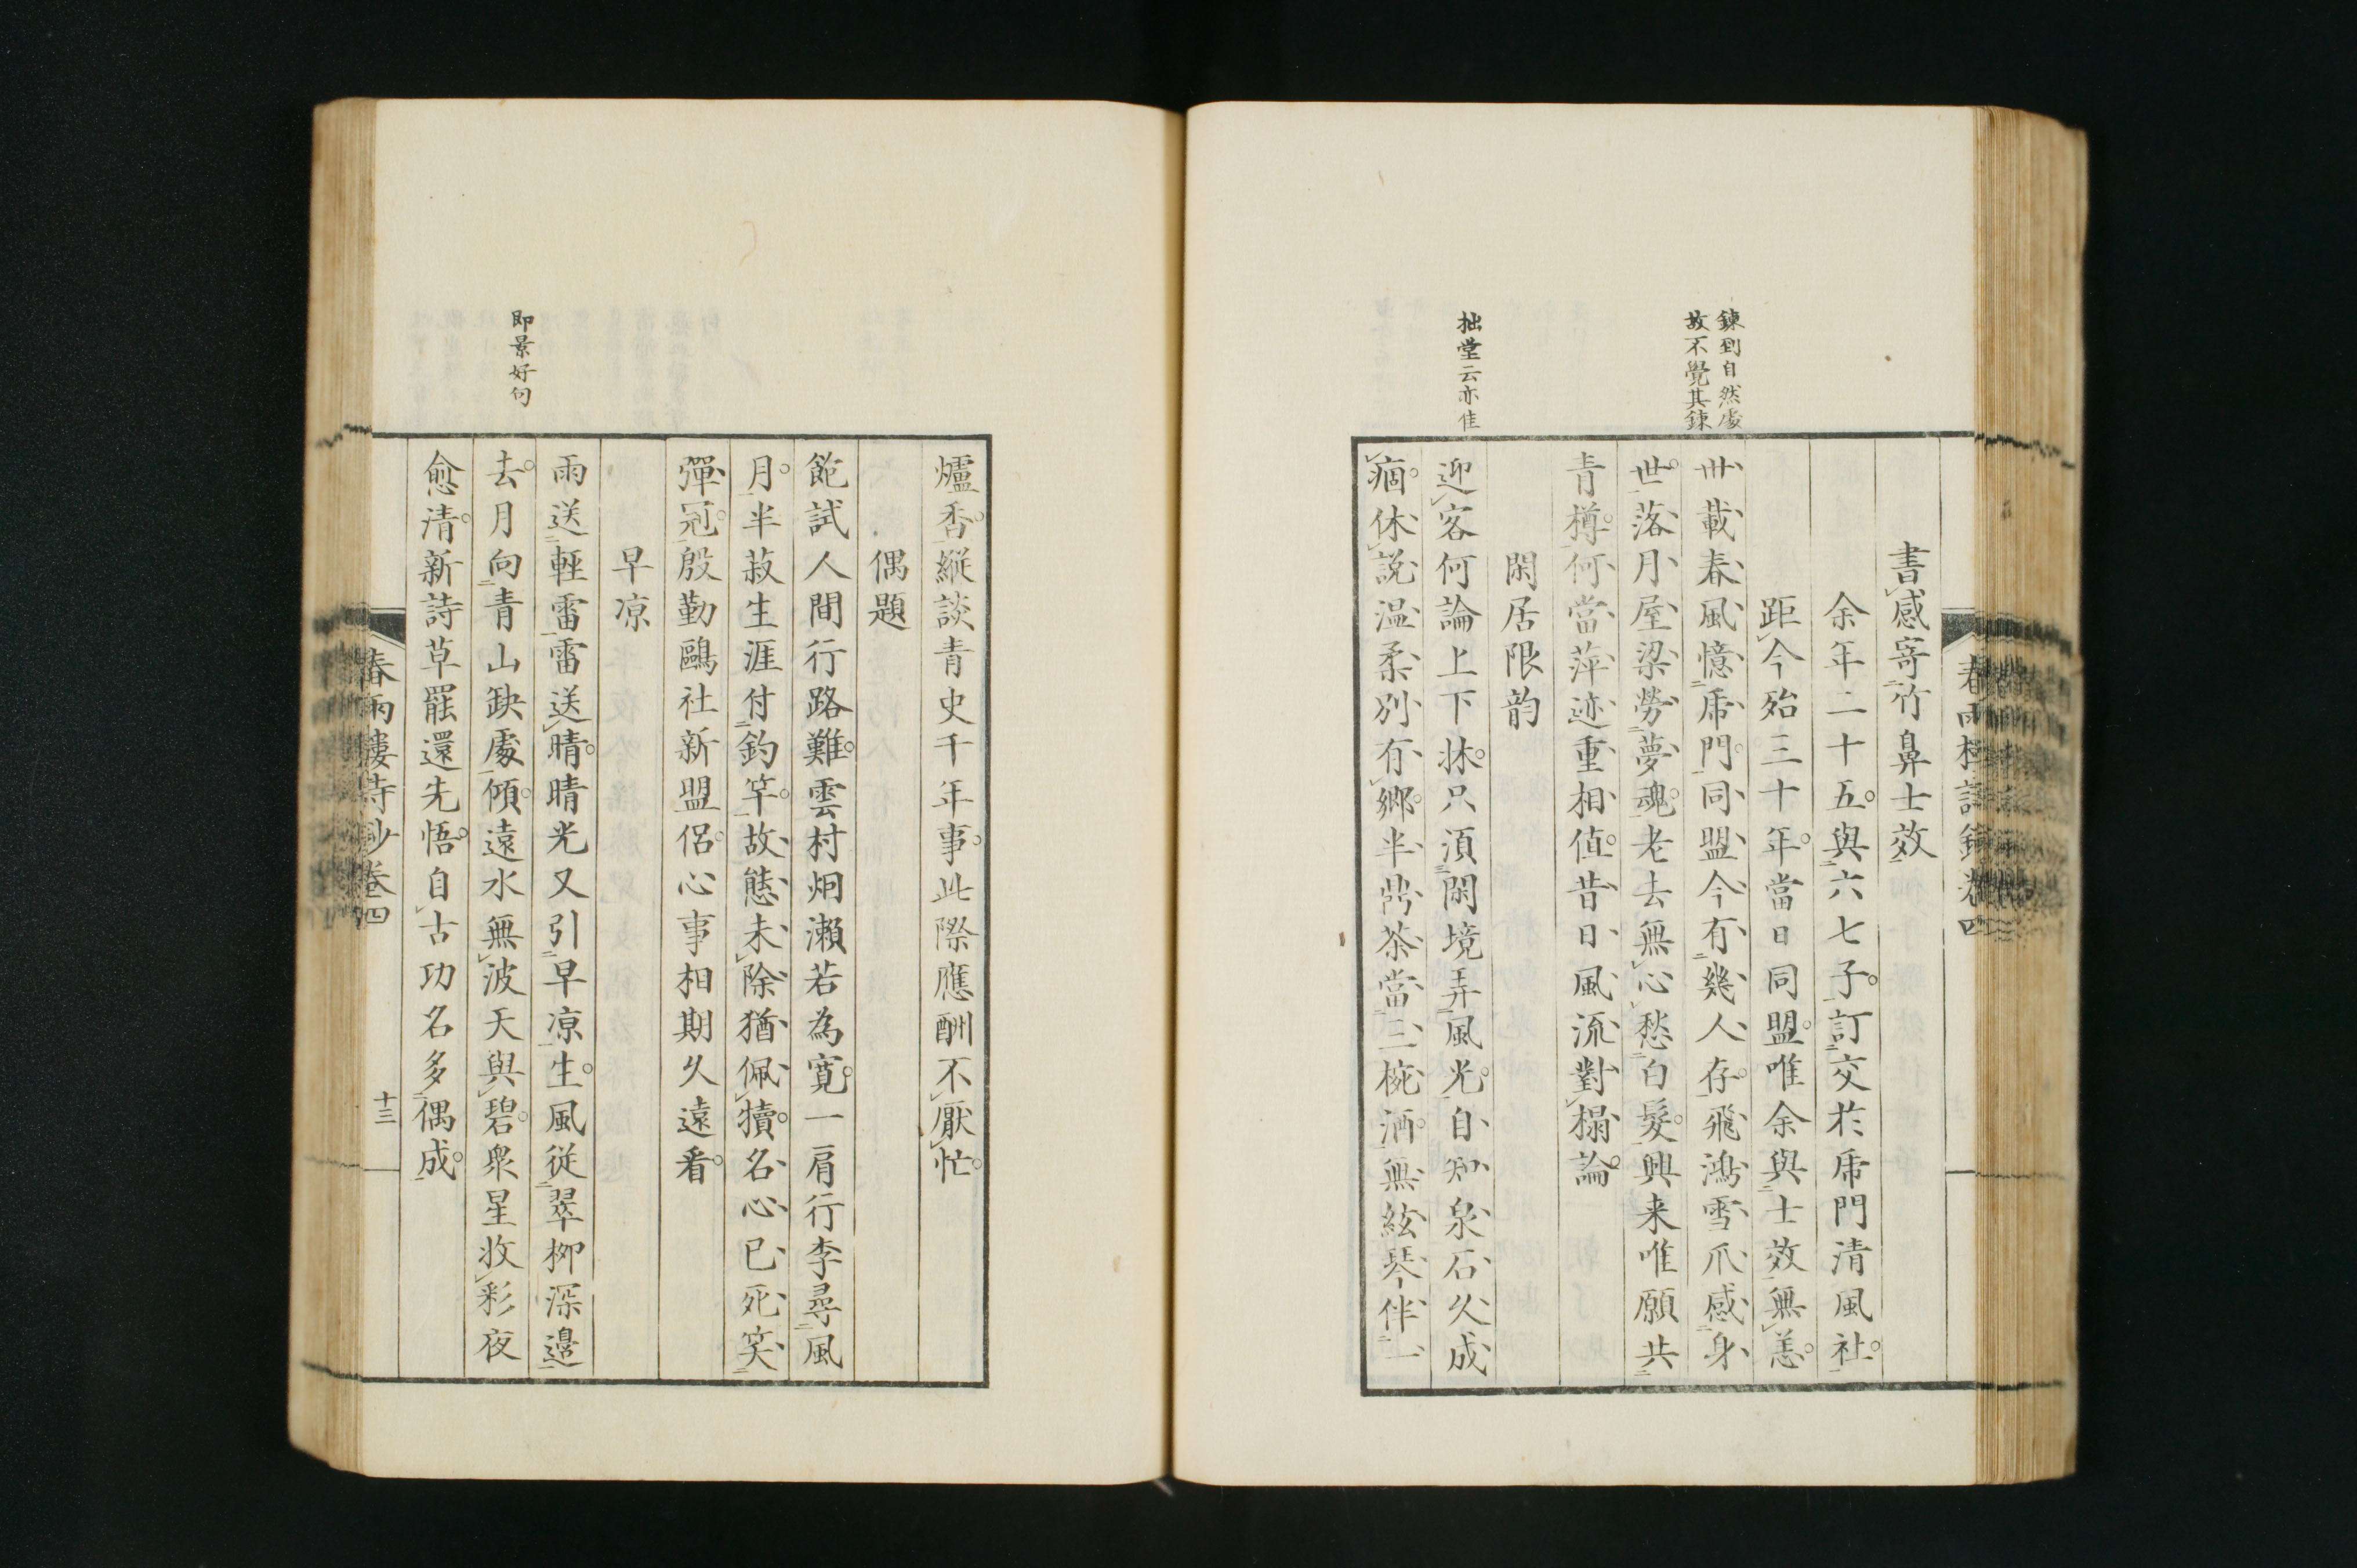 春雨樓詩鈔卷四
書感寄竹鼻士效
余年二十五與六七子訂交於乕門清風社
距今殆三十年當日同盟唯余與士效無恙
鍊到自然處
故不覺其鍊
卅載春風憶乕門同盟今有幾人存飛鴻雪爪感身
世落月屋梁勞夢魂老去無心愁白髮興来唯願共
青樽何當萍迹重相值昔日風流對榻論
閑居限韵
拙堂云亦佳
迎客何論上下牀只須閑境弄風光自知泉石久成
痼休說温柔別有鄉半鼎茶當三椀酒無絃琴伴一
爐香縱談青史千年事此際應酬不厭忙
偶題
飽試人間行路難雲村烟瀨若為寬一肩行李尋風
月半蓑生涯付釣竿故態未除猶佩犢名心已死笑
彈冠殷勤鷗社新盟侶心事相期久遠看
早凉
雨送輕雷雷送晴晴光又引早凉生風從翠柳深邊
即景好句
去月向青山缺處傾遠水無波天與碧衆星收彩夜
愈清新詩草罷還先悟自古功名多偶成
春雨樓詩鈔卷四
十三